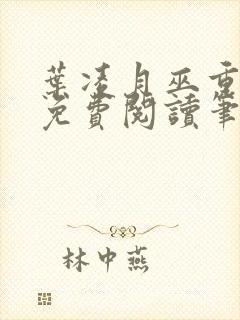 葉凌月巫重
免費閱讀筆
林中燕